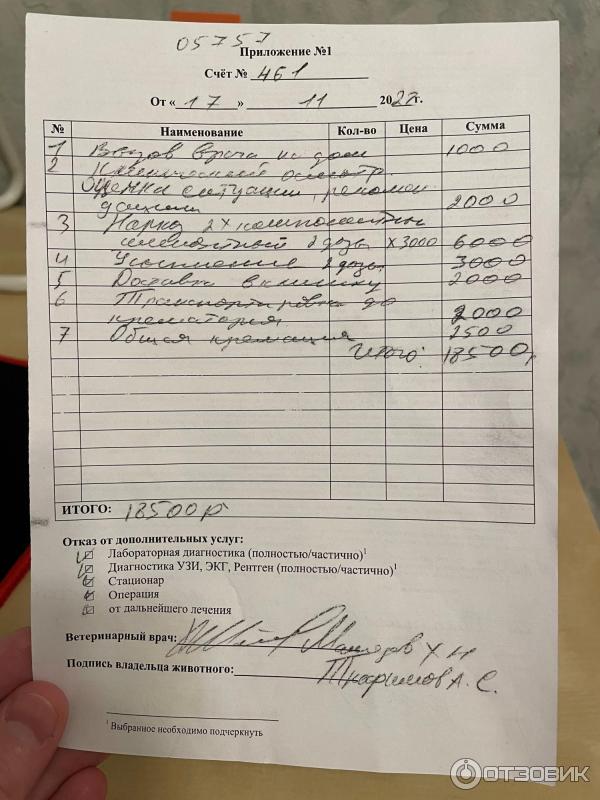 05757
Приложение №1
Счёт № 461
От « 17 » 11 2022г.
№ Наименование Кол-во Цена Сумма
1 Вызов врача на дом 1000
2 Клинический осмотр.
Оценка ситуации, рекомен
дации 2000
3 Нарко 2х компонентн
2 дозы х3000 6000
4 Усыпление 2 дозы 3000
5 Доставка в клинику 2000
6 Транспортировка до
крематория 2000
7 Общая кремация 2500
Итого: 18500р
ИТОГО: 18500р
Отказ от дополнительных услуг:
Лабораторная диагностика (полностью/частично)¹
Диагностика УЗИ, ЭКГ, Рентген (полностью/частично)¹
Стационар
Операция
от дальнейшего лечения
Ветеринарный врач: Х И
Подпись владельца животного: Трафимов А. С.
¹ Выбранное необходимо подчеркнуть
ОТЗОВИК